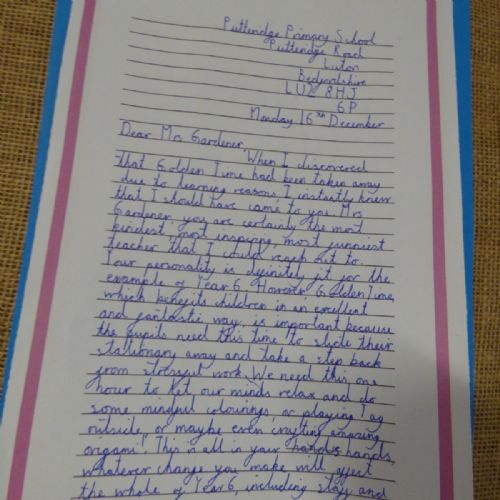 Putteridge Primary School
Putteridge Road
Luton
Bedfordshire
LU2 8HJ
6P
Monday 16th December
Dear Mrs Gardener,
When I discovered
that Golden Time had been taken away
due to learning reasons, I instantly knew
that I should have came to you. Mrs
Gardener, you are certainly the most
kindest, most inspiring, most funniest
teacher that I could reach out to.
Your personality is definitely fit for the
example of Year 6. However, Golden Time,
which benefits children in an excellent
and fantastic way, is important because
the pupils need this time to slide their
stationary away and take a step back
from stressful work. We need this one
hour to let our minds relax and do
some mindful colourings, or playing tag
outside, or maybe even crafting amazing
origami! This is all in your hands,
whatever change you make will affect
the whole of Year 6, including staff and